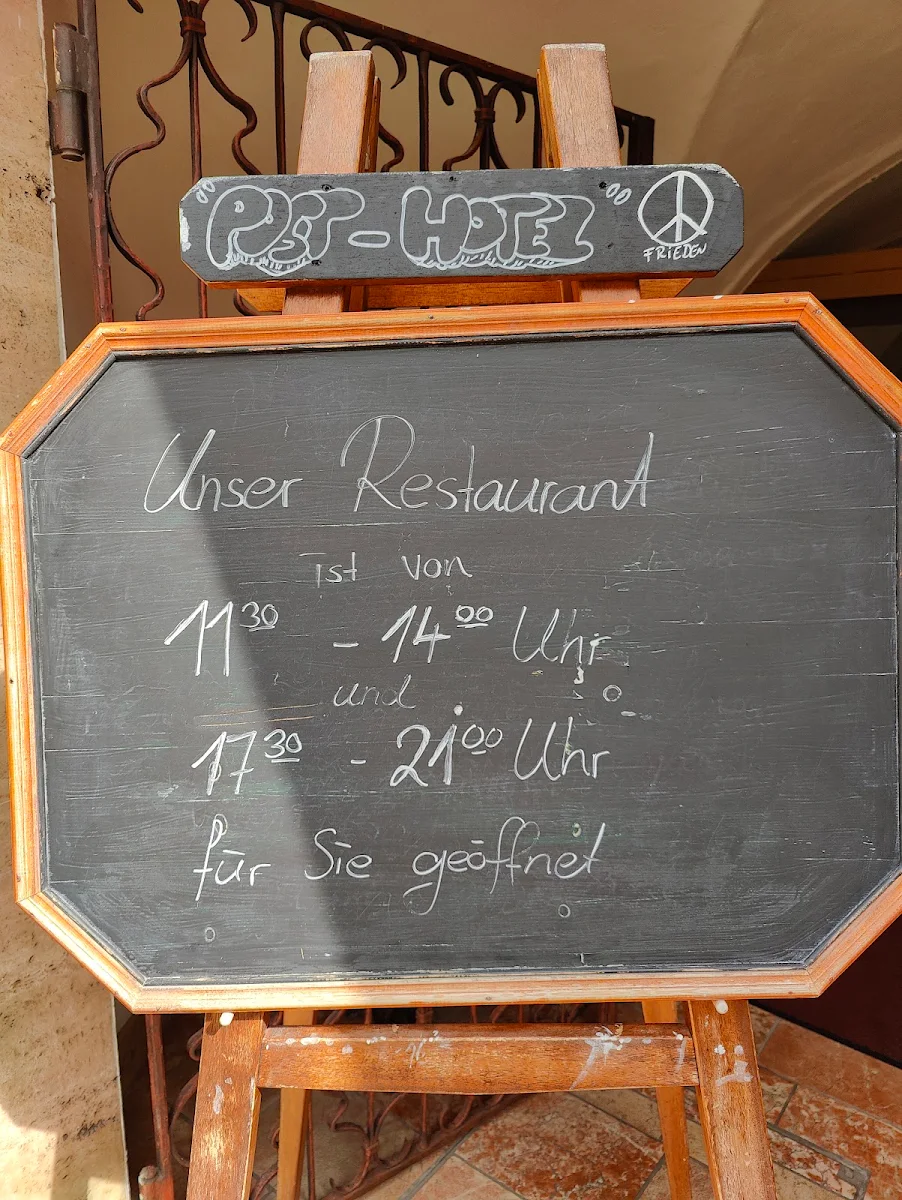 POST-HOTEL
FRIEDEN
Unser Restaurant
ist von
11³⁰ - 14⁰⁰ Uhr
und
17³⁰ - 21⁰⁰ Uhr
für Sie geöffnet